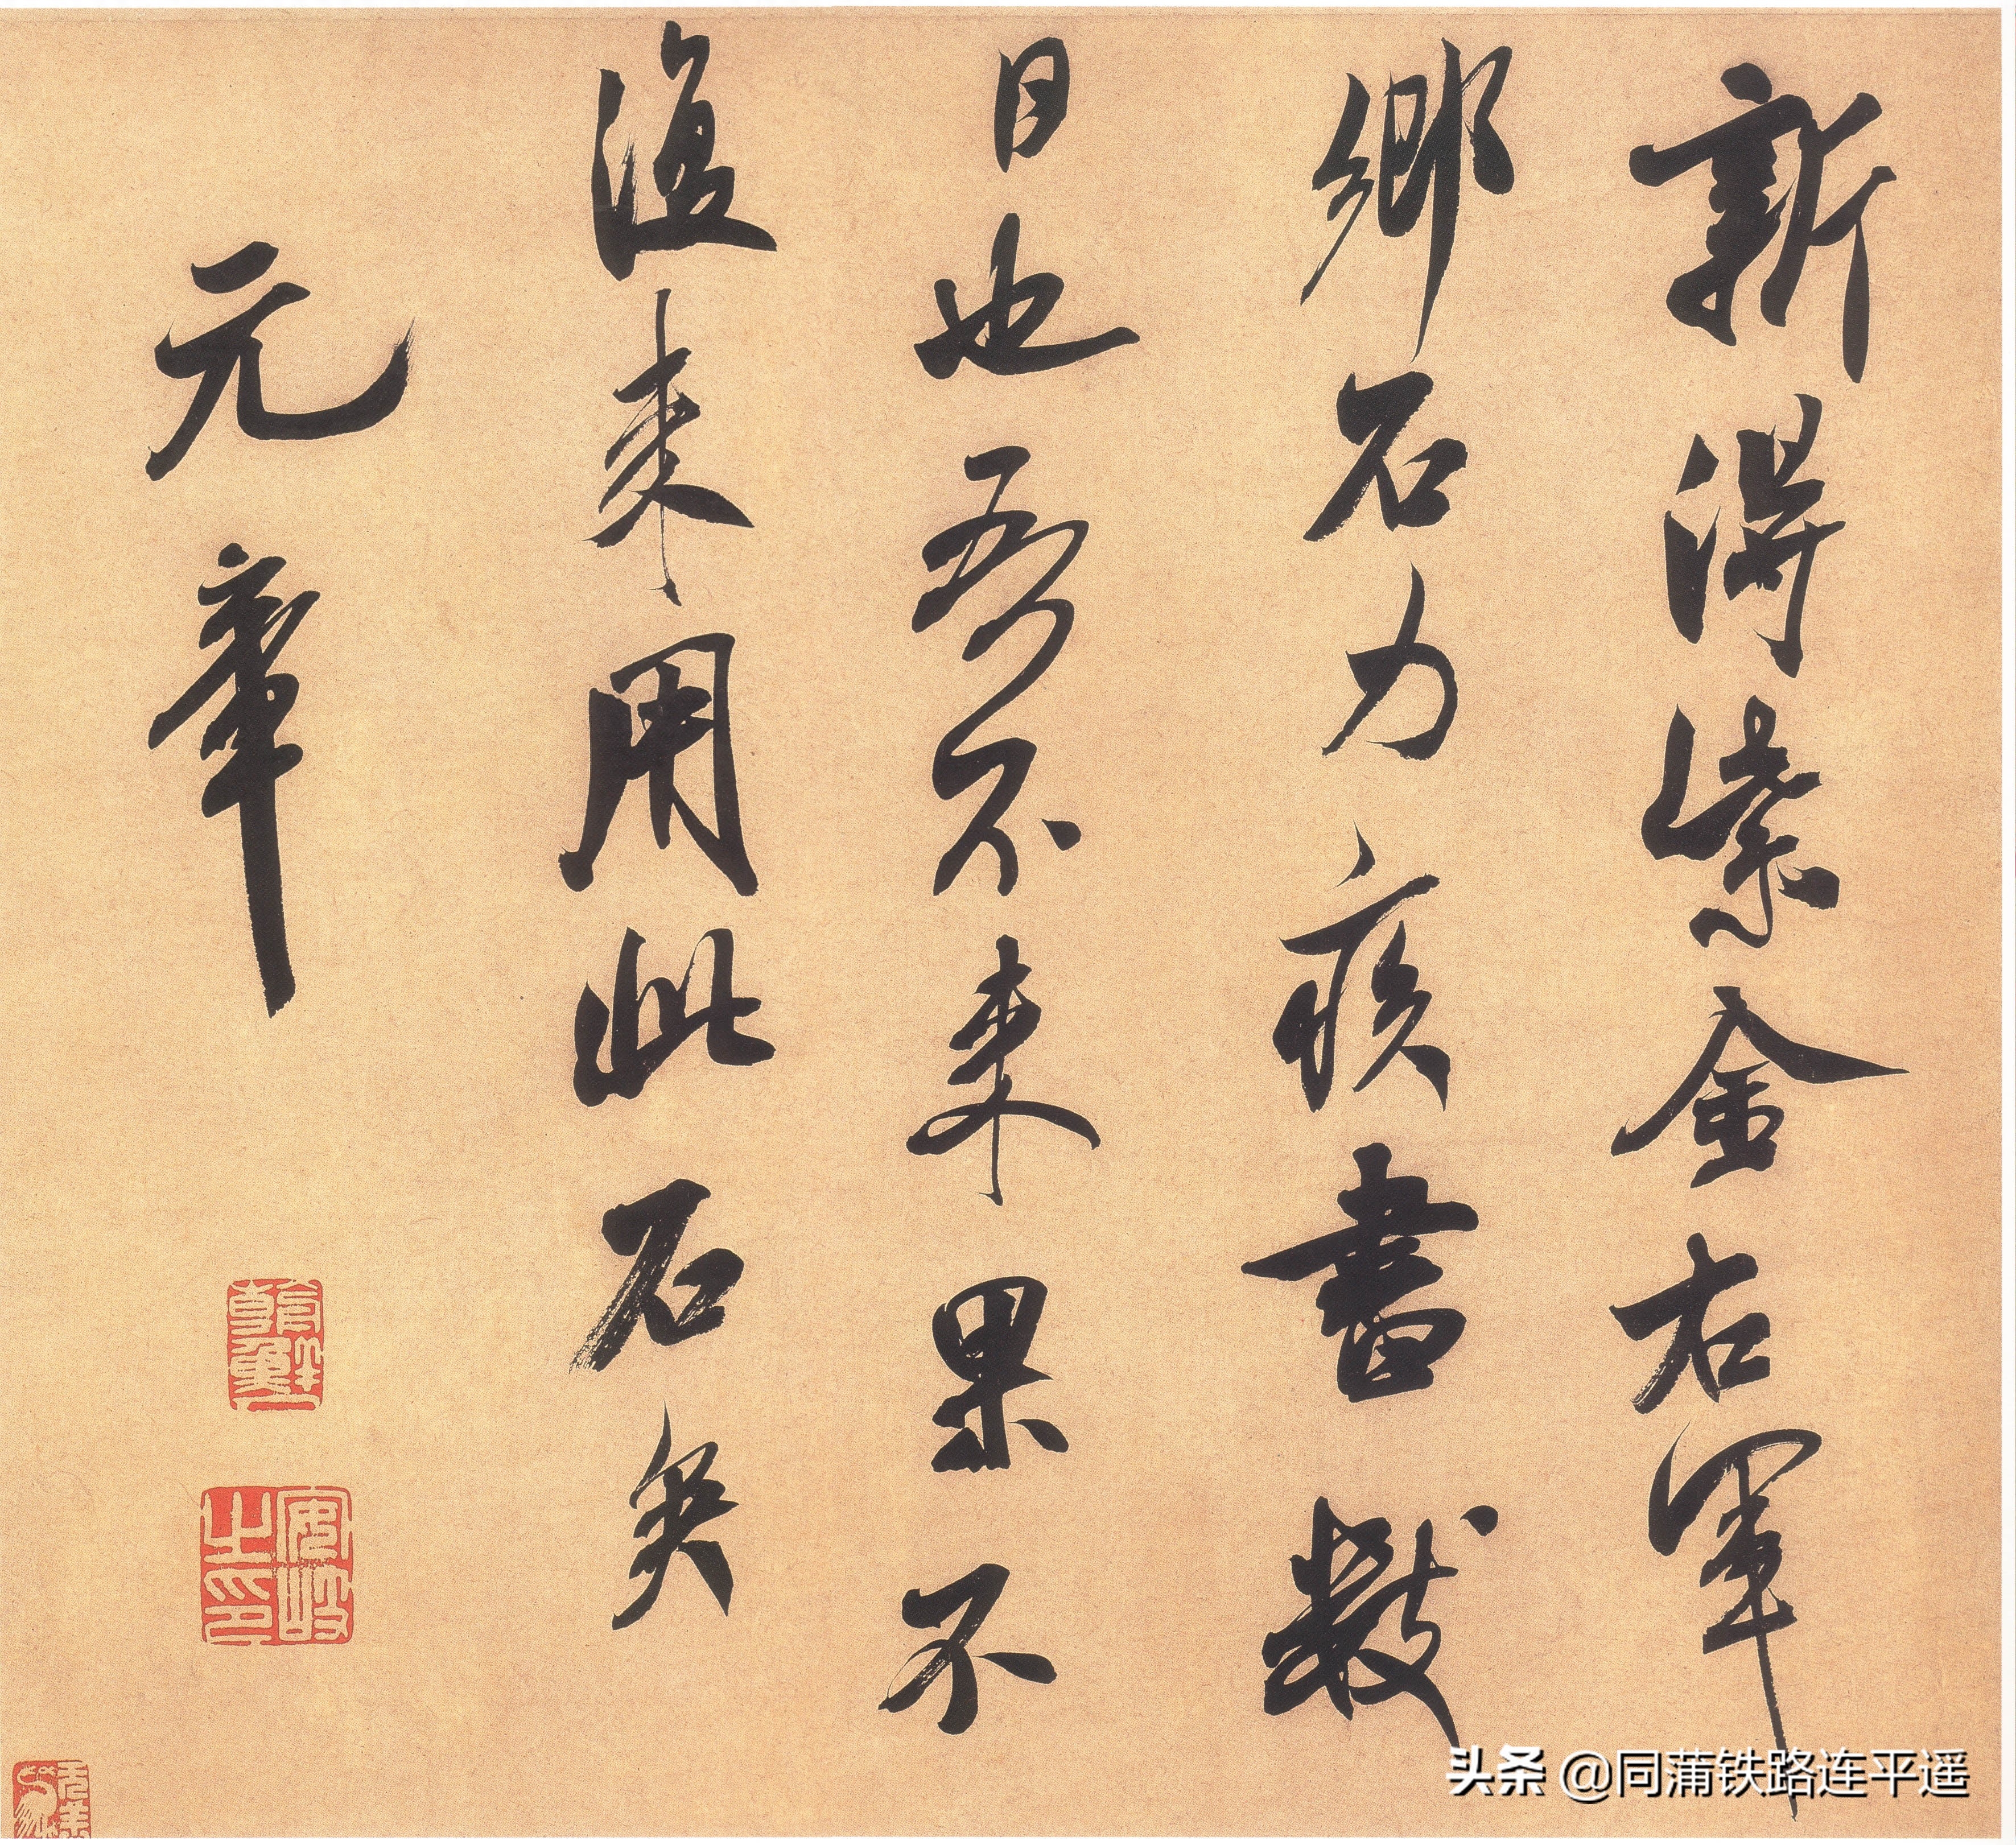 新得紫金右軍
鄉石力疾書數
日也吾不来果不
復来用此石矣
元章
安岐之印
头条 @同蒲铁路连平遥